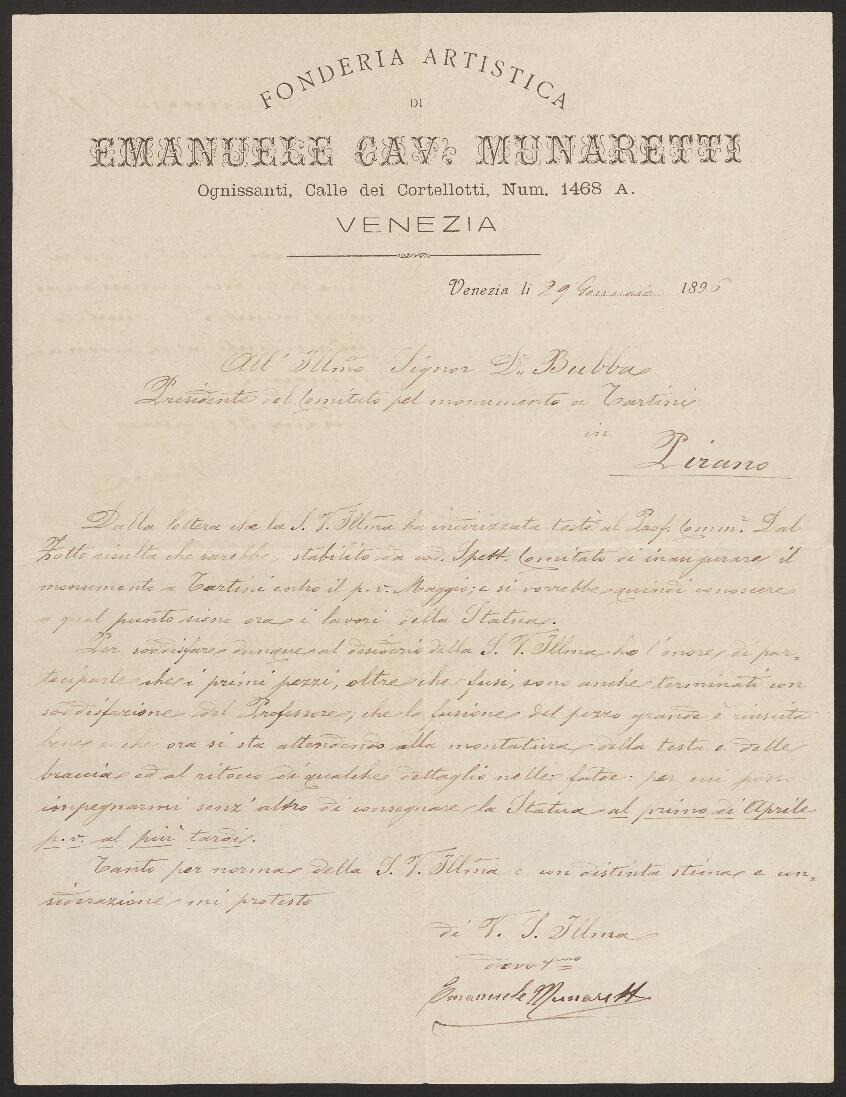 FONDERIA ARTISTICA
DI
EMANUELE CAV. MUNARETTI
Ognissanti, Calle dei Cortellotti, Num. 1468 A.
VENEZIA
Venezia li 29 Gennaio 1896
All' Illmo Signor Dr Bubba
Presidente del Comitato pel monumento a Tartini
in
Pirano
Dalla lettera che la S. V. Illma ha indirizzata testè al Prof. Commr. Dal
Zotto risulta che sarebbe stabilito da cod. Spett. Comitato di inaugurare il
monumento a Tartini entro il p. v. Maggio; e si vorrebbe quindi conoscere
a qual punto sieno ora i lavori della Statua.
Per soddisfare dunque al desiderio della S. V. Illma ho l'onore di par=
teciparle che i primi pezzi, oltre che fusi, sono anche terminati con
soddisfazione del Professore; che la fusione del pezzo grande è riuscita
bene e che ora si sta attendendo alla montatura della testa e delle
braccia ed al ritocco di qualche dettaglio nelle falde: per cui posso
impegnarmi senz'altro di consegnare la Statua al primo di Aprile
p. v. al più tardi.
Tanto per norma della S. V. Illma e con distinta stima e con=
siderazione mi protesto
di V. S. Illma
devotmo
Emanuele Munaretti